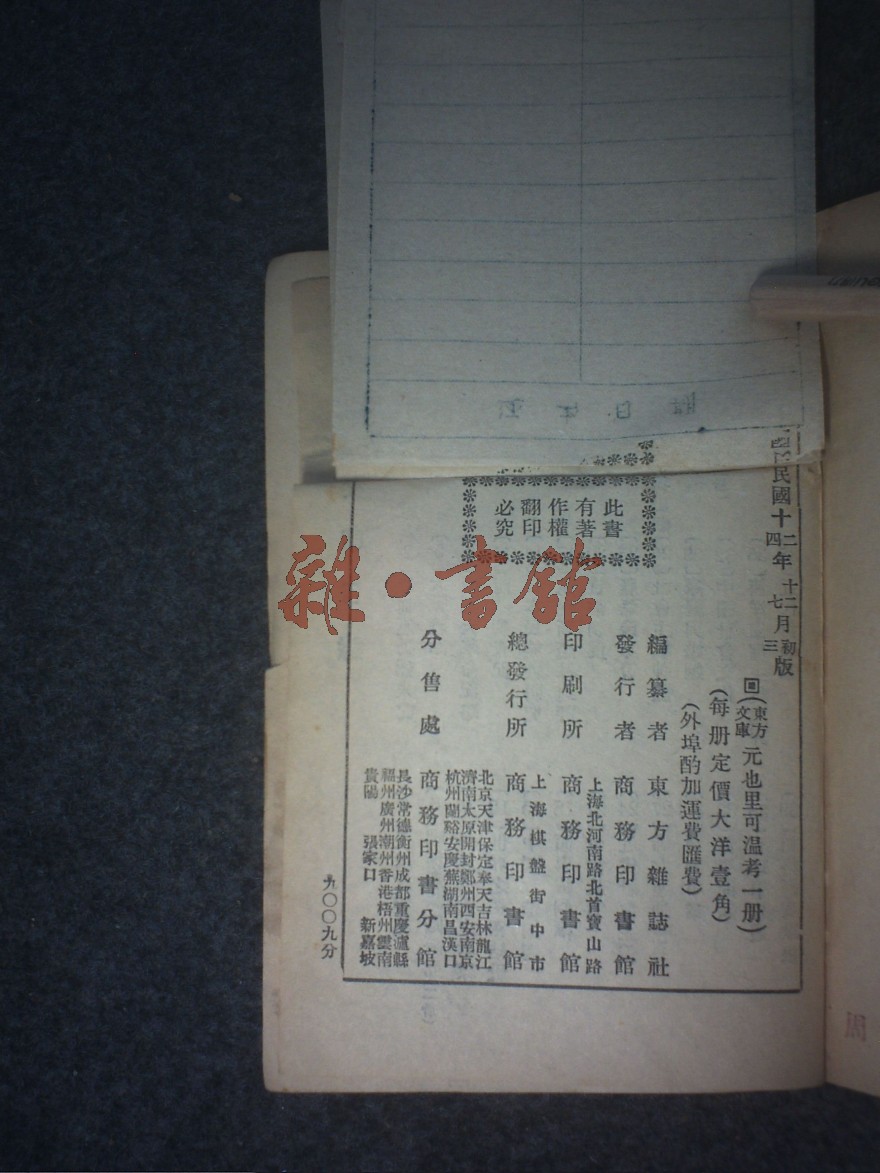 民國十二年十二月初版
四 七 三
(東方文庫)元也里可溫考一册)
(每册定價大洋壹角)
(外埠酌加運費匯費)
此書
有著
作權
翻印
必究
編纂者 東方雜誌社
發行者 商務印書館
上海北河南路北首寶山路
印刷所 商務印書館
上海棋盤街中市
總發行所 商務印書館
分售處 商務印書分館
北京天津保定奉天吉林龍江
濟南太原開封鄭州西安南京
杭州蘭谿安慶蕪湖南昌漢口
長沙常德衡州成都重慶瀘縣
福州廣州潮州香港梧州雲南
貴陽 張家口 新嘉坡
九〇〇九分
雜·書館